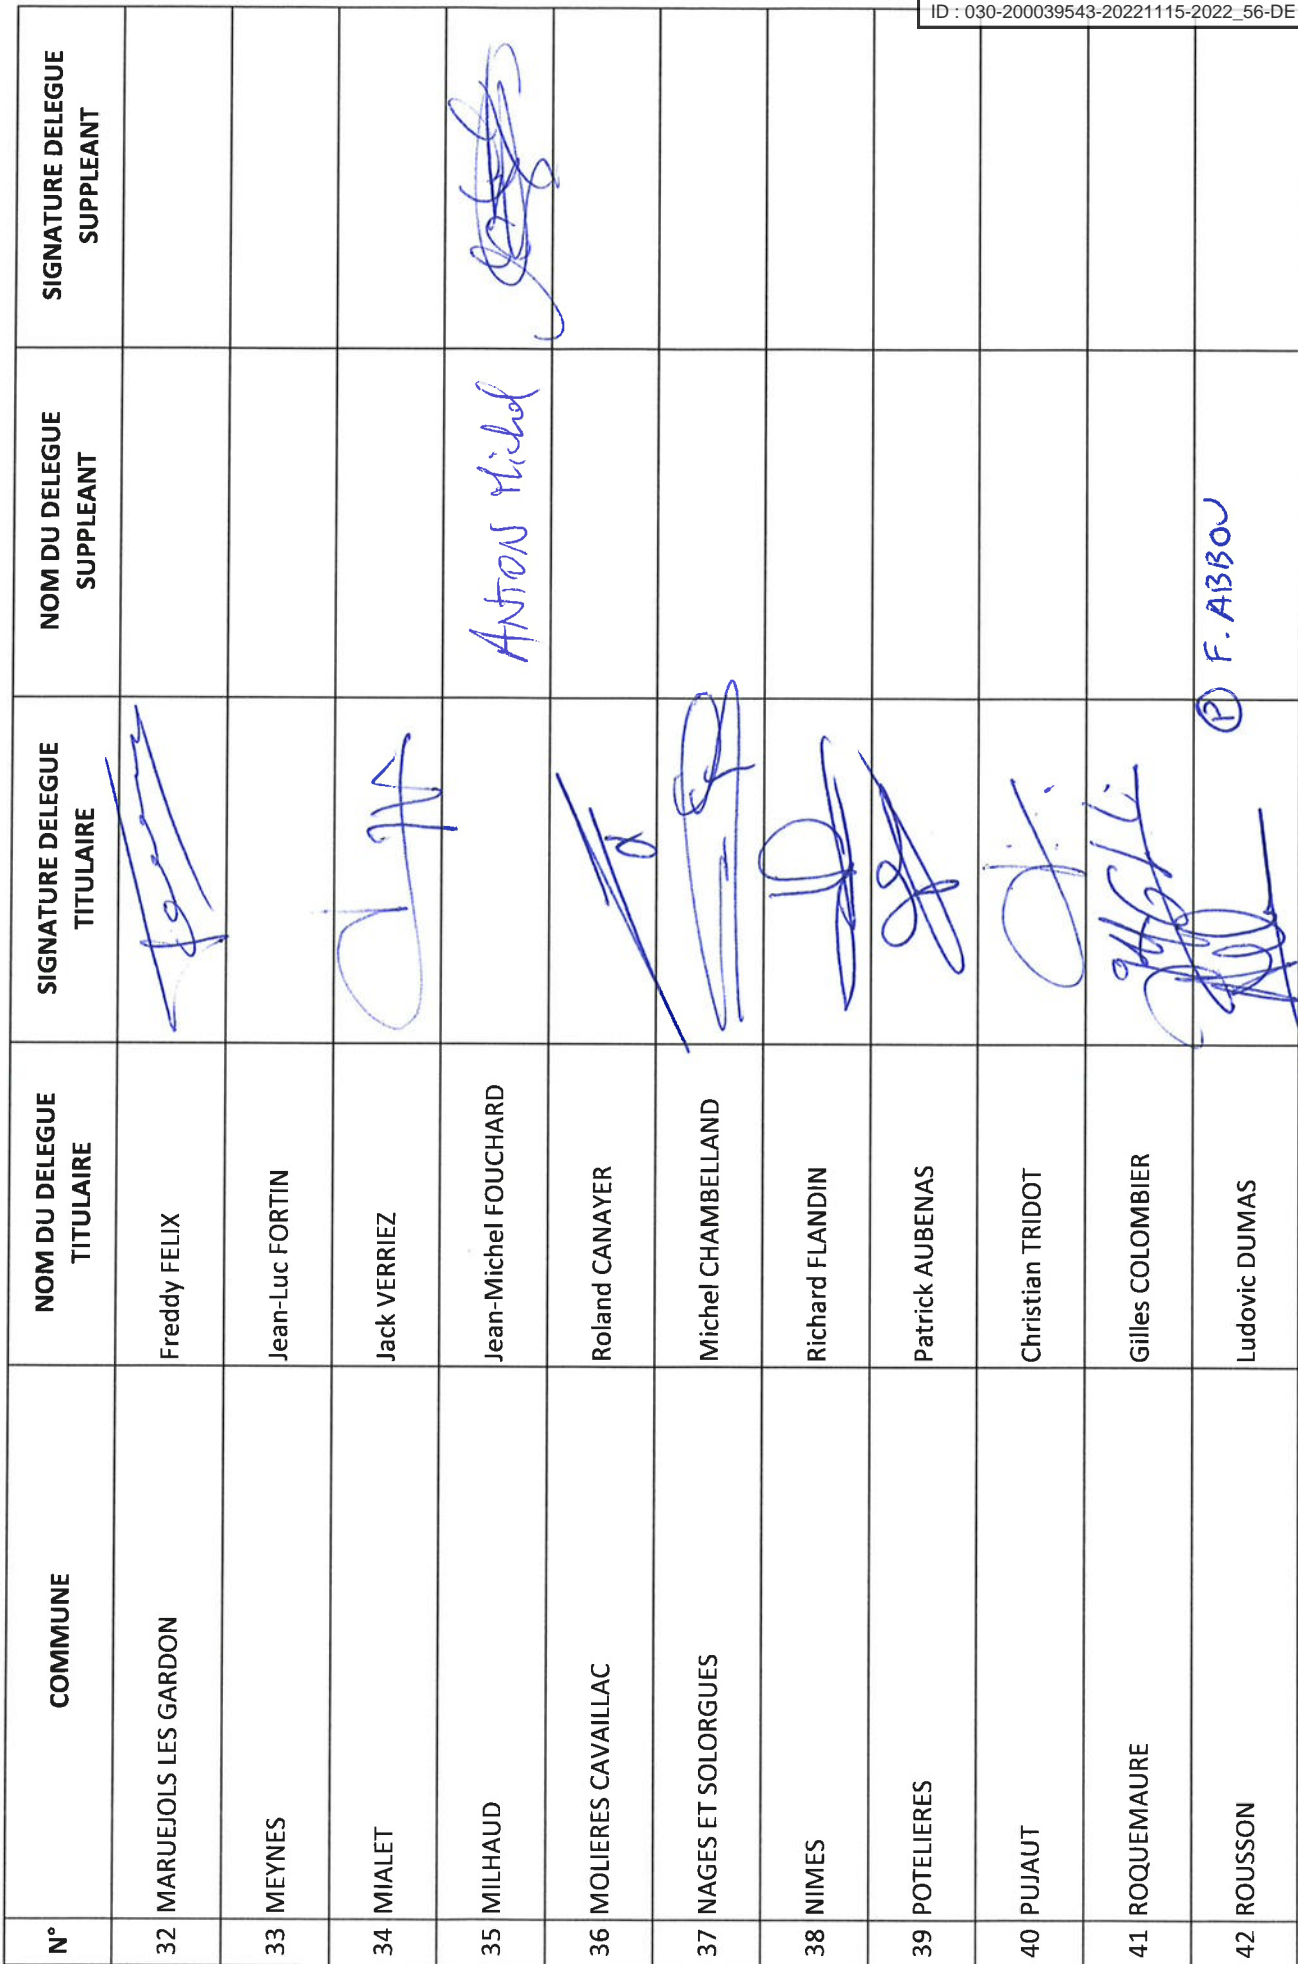 ID : 030-200039543-20221115-2022_56-DE
N° COMMUNE NOM DU DELEGUE TITULAIRE SIGNATURE DELEGUE TITULAIRE NOM DU DELEGUE SUPPLEANT SIGNATURE DELEGUE SUPPLEANT
32 MARUEJOLS LES GARDON Freddy FELIX
33 MEYNES Jean-Luc FORTIN
34 MIALET Jack VERRIEZ
35 MILHAUD Jean-Michel FOUCHARD ANTON Michel
36 MOLIERES CAVAILLAC Roland CANAYER
37 NAGES ET SOLORGUES Michel CHAMBELLAND
38 NIMES Richard FLANDIN
39 POTELIERES Patrick AUBENAS
40 PUJAUT Christian TRIDOT
41 ROQUEMAURE Gilles COLOMBIER
42 ROUSSON Ludovic DUMAS P F. ABBOU